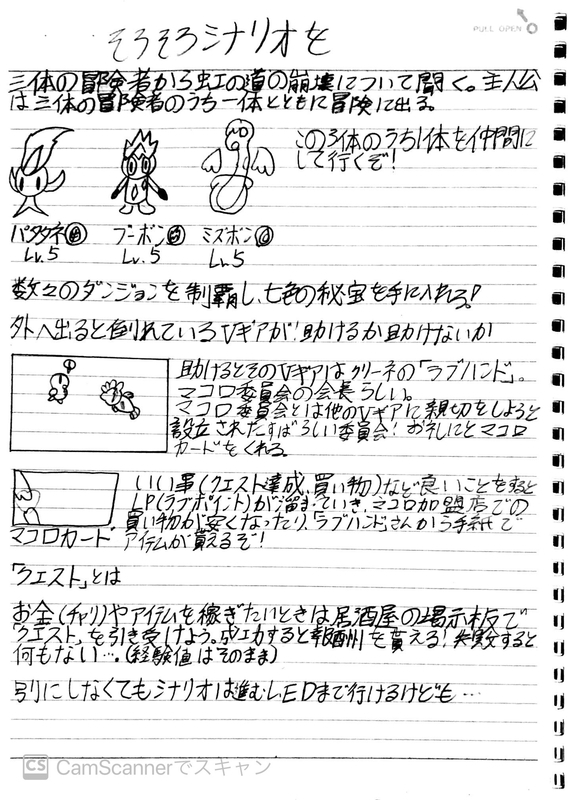 PULL OPEN
そろそろシナリオを
三体の冒険者から虹の道の崩壊について聞く。主人公
は三体の冒険者のうち一体とともに冒険に出る。
この3体のうち1体を仲間に
して行くぞ!
パタタネ
ブーボン
ミズポン
Lv.5
Lv.5
Lv.5
数々のダンジョンを制覇し、七色の秘宝を手に入れろ!
外へ出ると倒れているVギアが!助けるか助けないか
助けるとそのVギアは、クリーネの「ラブハンド」。
マコロ委員会の会長らしい。
マコロ委員会とは他のVギアに親切をしようと
設立されたすばらしい委員会!お礼にとマコロ
カードをくれる。
いい事(クエスト達成、買い物)など良いことをすると
LP(ラブポイント)が溜まっていき、マコロ加盟店での
買い物が安くなったり、「ラブハンド」さんから手紙で
マコロカード アイテムが貰えるぞ!
「クエスト」とは
お金(チャリ)やアイテムを稼ぎたいときは居酒屋の掲示板で
「クエスト」を引き受けよう。成功すると報酬を貰える!失敗すると
何もない…。(経験値はそのまま)
別にしなくてもシナリオは進むしEDまで行けるけども…
CS CamScannerでスキャン